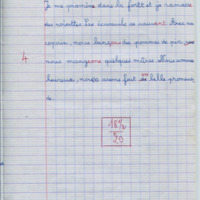 Je me promène dans la forêt et je ramasse
des noisettes. Les écureuils se sauvent. Avec
copains, nous lançons des pommes de pin
4
nous mangeons quelques mûres. Nous sommes
heureux, nous avons fait une belle promena
de.
18½
20